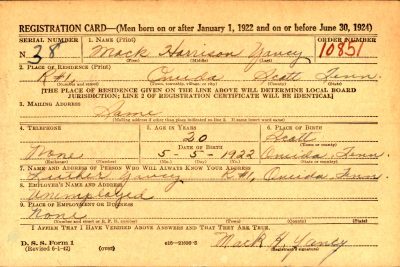 REGISTRATION CARD—(Men born on or after January 1, 1922 and on or before June 30, 1924)
SERIAL NUMBER 1. NAME (Print) ORDER NUMBER
N. 38 Mack Harrison Yancy 10851
(First) (Middle) (Last)
2. PLACE OF RESIDENCE (Print)
R#1, Oneida Scott Tenn.
(Number and street) (Town, township, village, or city) (County) (State)
[THE PLACE OF RESIDENCE GIVEN ON THE LINE ABOVE WILL DETERMINE LOCAL BOARD
JURISDICTION; LINE 2 OF REGISTRATION CERTIFICATE WILL BE IDENTICAL]
3. MAILING ADDRESS
Same
[Mailing address if other than place indicated on line 2. If same insert word same]
4. TELEPHONE 5. AGE IN YEARS 6. PLACE OF BIRTH
20 Scott
DATE OF BIRTH (Town or county)
None 5-5-1922 Oneida, Tenn.
(Exchange) (Number) (Mo.) (Day) (Yr.) (State or country)
7. NAME AND ADDRESS OF PERSON WHO WILL ALWAYS KNOW YOUR ADDRESS
Yancy R#1, Oneida Tenn.
8. EMPLOYER'S NAME AND ADDRESS
Unemployed
9. PLACE OF EMPLOYMENT OR BUSINESS
None
(Number and street or R. F. D. number) (Town) (County) (State)
I AFFIRM THAT I HAVE VERIFIED ABOVE ANSWERS AND THAT THEY ARE TRUE.
D. S. S. Form 1
(Revised 6-1-42) (over) Mack H. Yancy
(Registrant's signature)